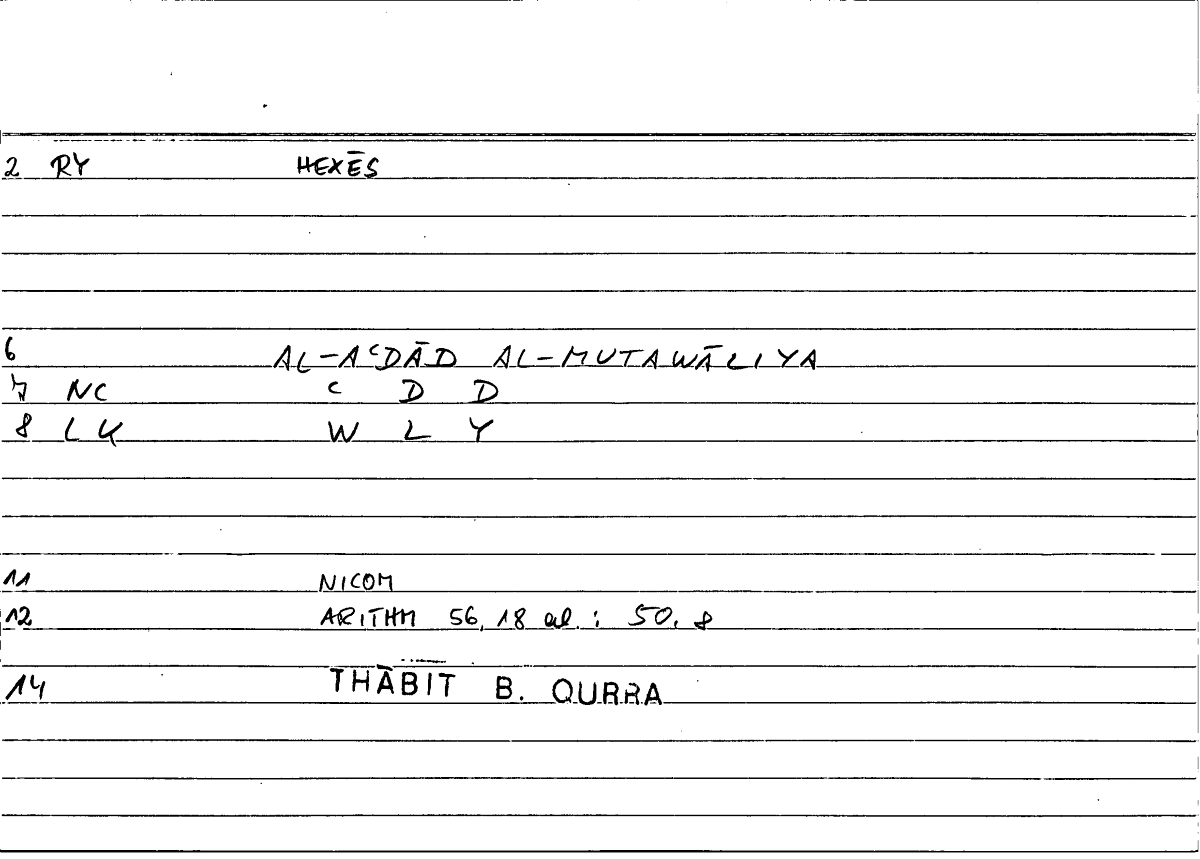 2 RY HEXĒS
6 AL-AʿDĀD AL-MUTAWĀLIYA
7 NC ʿ D D
8 LK W L Y
11 NICOM
12 ARITHM 56, 18 al. : 50, 8
14 THĀBIT B. QURRA